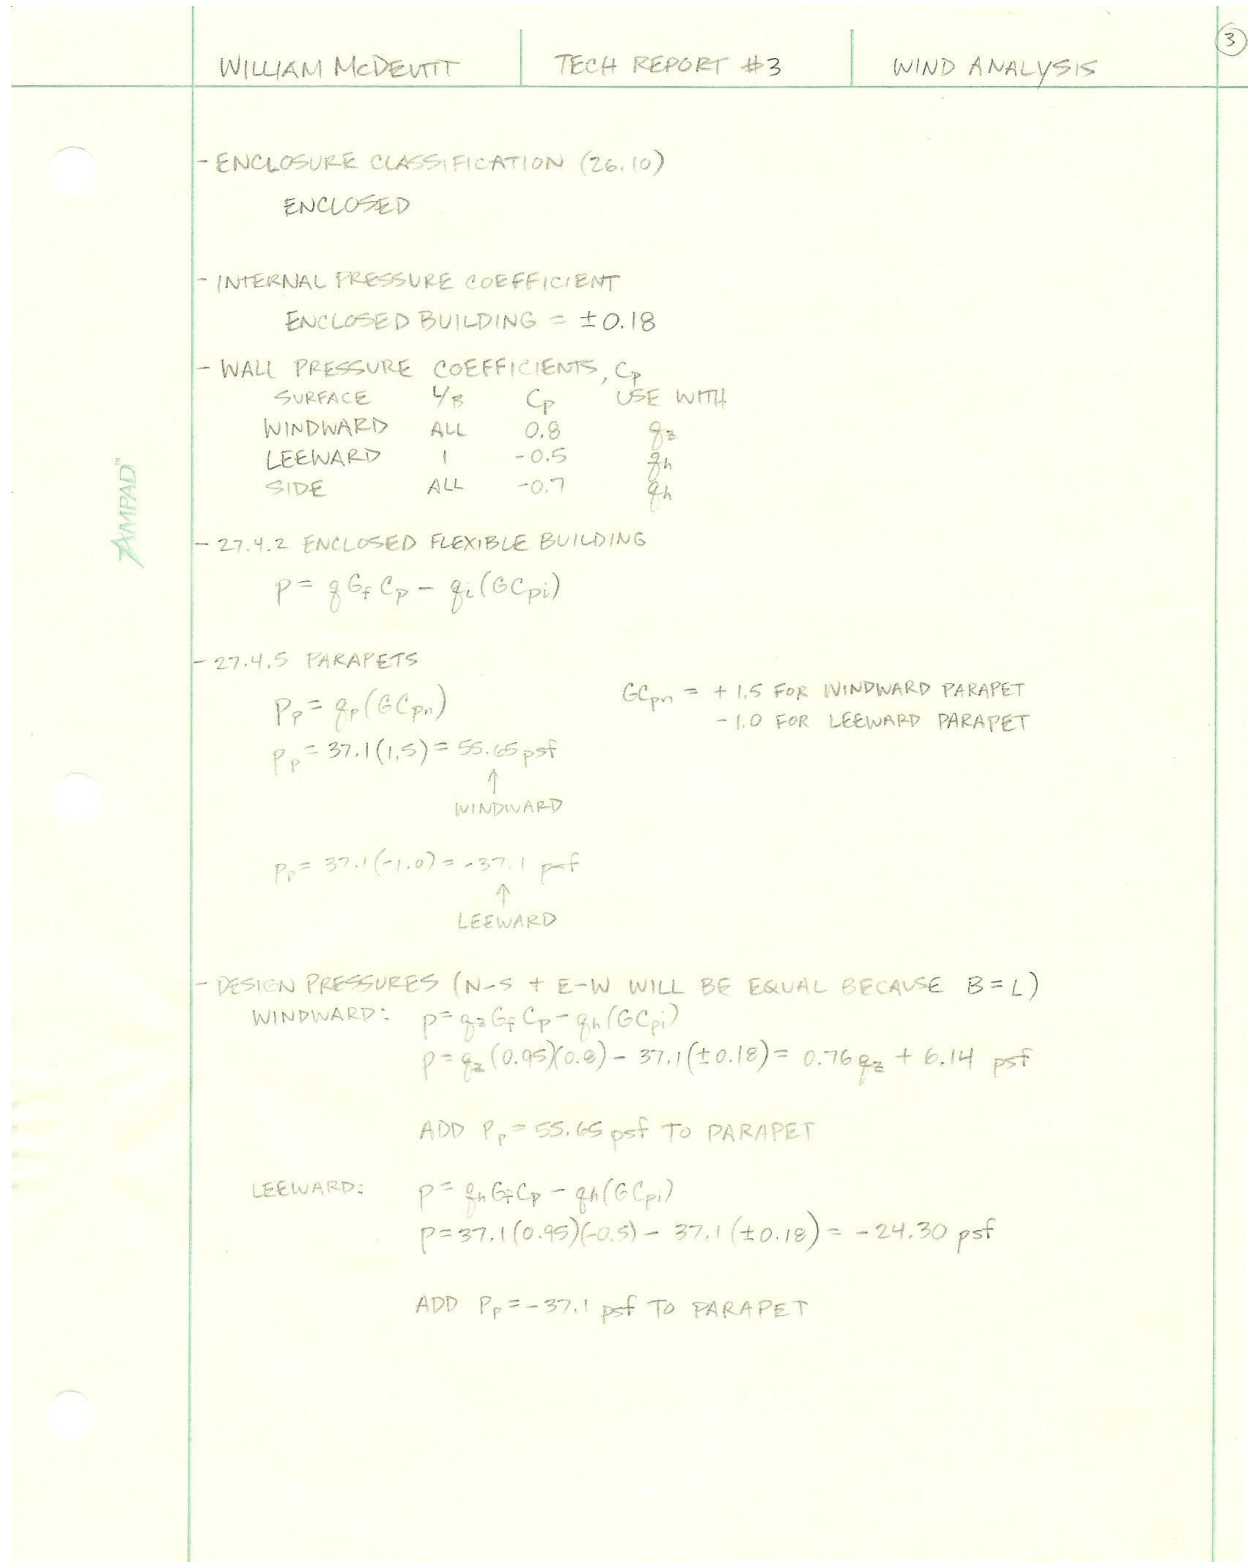 3
WILLIAM McDEVITT TECH REPORT #3 WIND ANALYSIS
- ENCLOSURE CLASSIFICATION (26.10)
ENCLOSED
- INTERNAL PRESSURE COEFFICIENT
ENCLOSED BUILDING = ±0.18
- WALL PRESSURE COEFFICIENTS, Cp
SURFACE L/B Cp USE WITH
WINDWARD ALL 0.8 qz
LEEWARD 1 -0.5 qh
SIDE ALL -0.7 qh
AMPAD™
- 27.4.2 ENCLOSED FLEXIBLE BUILDING
p = q Gf Cp - qi (GCpi)
- 27.4.5 PARAPETS
Pp = qp (GCpn) GCpn = + 1.5 FOR WINDWARD PARAPET
- 1.0 FOR LEEWARD PARAPET
Pp = 37.1(1.5) = 55.65 psf
↑
WINDWARD
Pp = 37.1(-1.0) = -37.1 psf
↑
LEEWARD
- DESIGN PRESSURES (N-S + E-W WILL BE EQUAL BECAUSE B = L)
WINDWARD: p = qz Gf Cp - qh (GCpi)
p = qz (0.95)(0.8) - 37.1(±0.18) = 0.76 qz + 6.14 psf
ADD Pp = 55.65 psf TO PARAPET
LEEWARD: p = qh Gf Cp - qh (GCpi)
p = 37.1(0.95)(-0.5) - 37.1(±0.18) = -24.30 psf
ADD Pp = -37.1 psf TO PARAPET